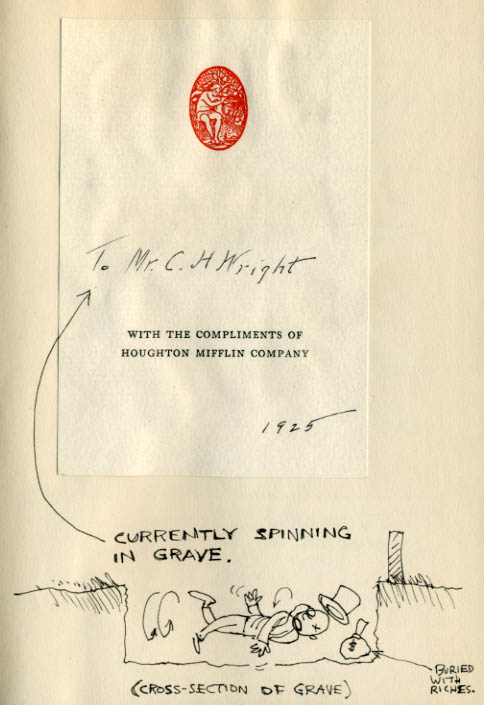 To Mr. C. H Wright
WITH THE COMPLIMENTS OF
HOUGHTON MIFFLIN COMPANY
1925
CURRENTLY SPINNING
IN GRAVE.
$
BURIED
WITH
RICHES.
(CROSS-SECTION OF GRAVE)